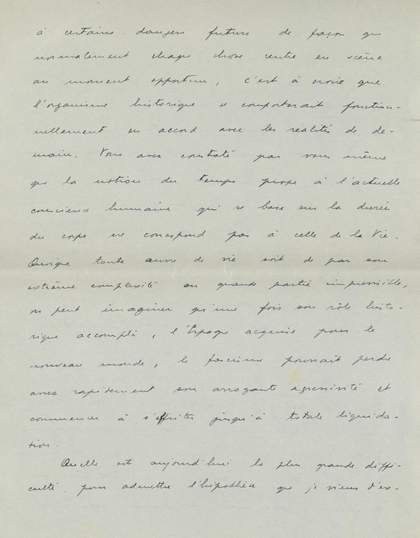 à certains dangers futurs de façon que
normalement chaque chose rentre en scène
au moment opportun, c'est à croire que
l'organisme historique se comporterait fonction-
nellement en accord avec les réalités de de-
main. Vous avez constaté par vous même
que la notion du temps propre à l'actuelle
conscience humaine qui se base sur la durée
du corps ne correspond pas à celle de la Vie.
Quoique toute œuvre de vie soit de par son
extrême complexité en grande partie imprévisible,
on peut imaginer qu'une fois son rôle histo-
rique accompli, l'Espagne acquise pour le
nouveau monde, le fascisme pourrait perdre
assez rapidement son arrogante agressivité et
commencer à s'effriter jusqu'à totale liquida-
tion.
Quelle est aujourd'hui la plus grande diffi-
culté pour admettre l'hypothèse que je viens d'ex-